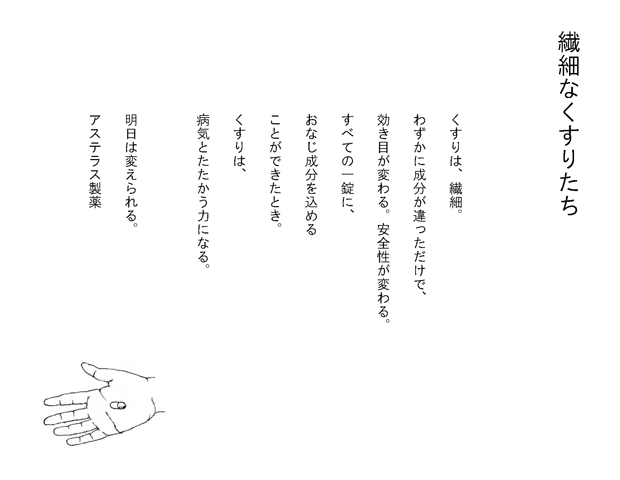 繊細なくすりたち
くすりは、繊細。
わずかに成分が違っただけで、
効き目が変わる。安全性が変わる。
すべての一錠に、
おなじ成分を込める
ことができたとき。
くすりは、
病気とたたかう力になる。
明日は変えられる。
アステラス製薬